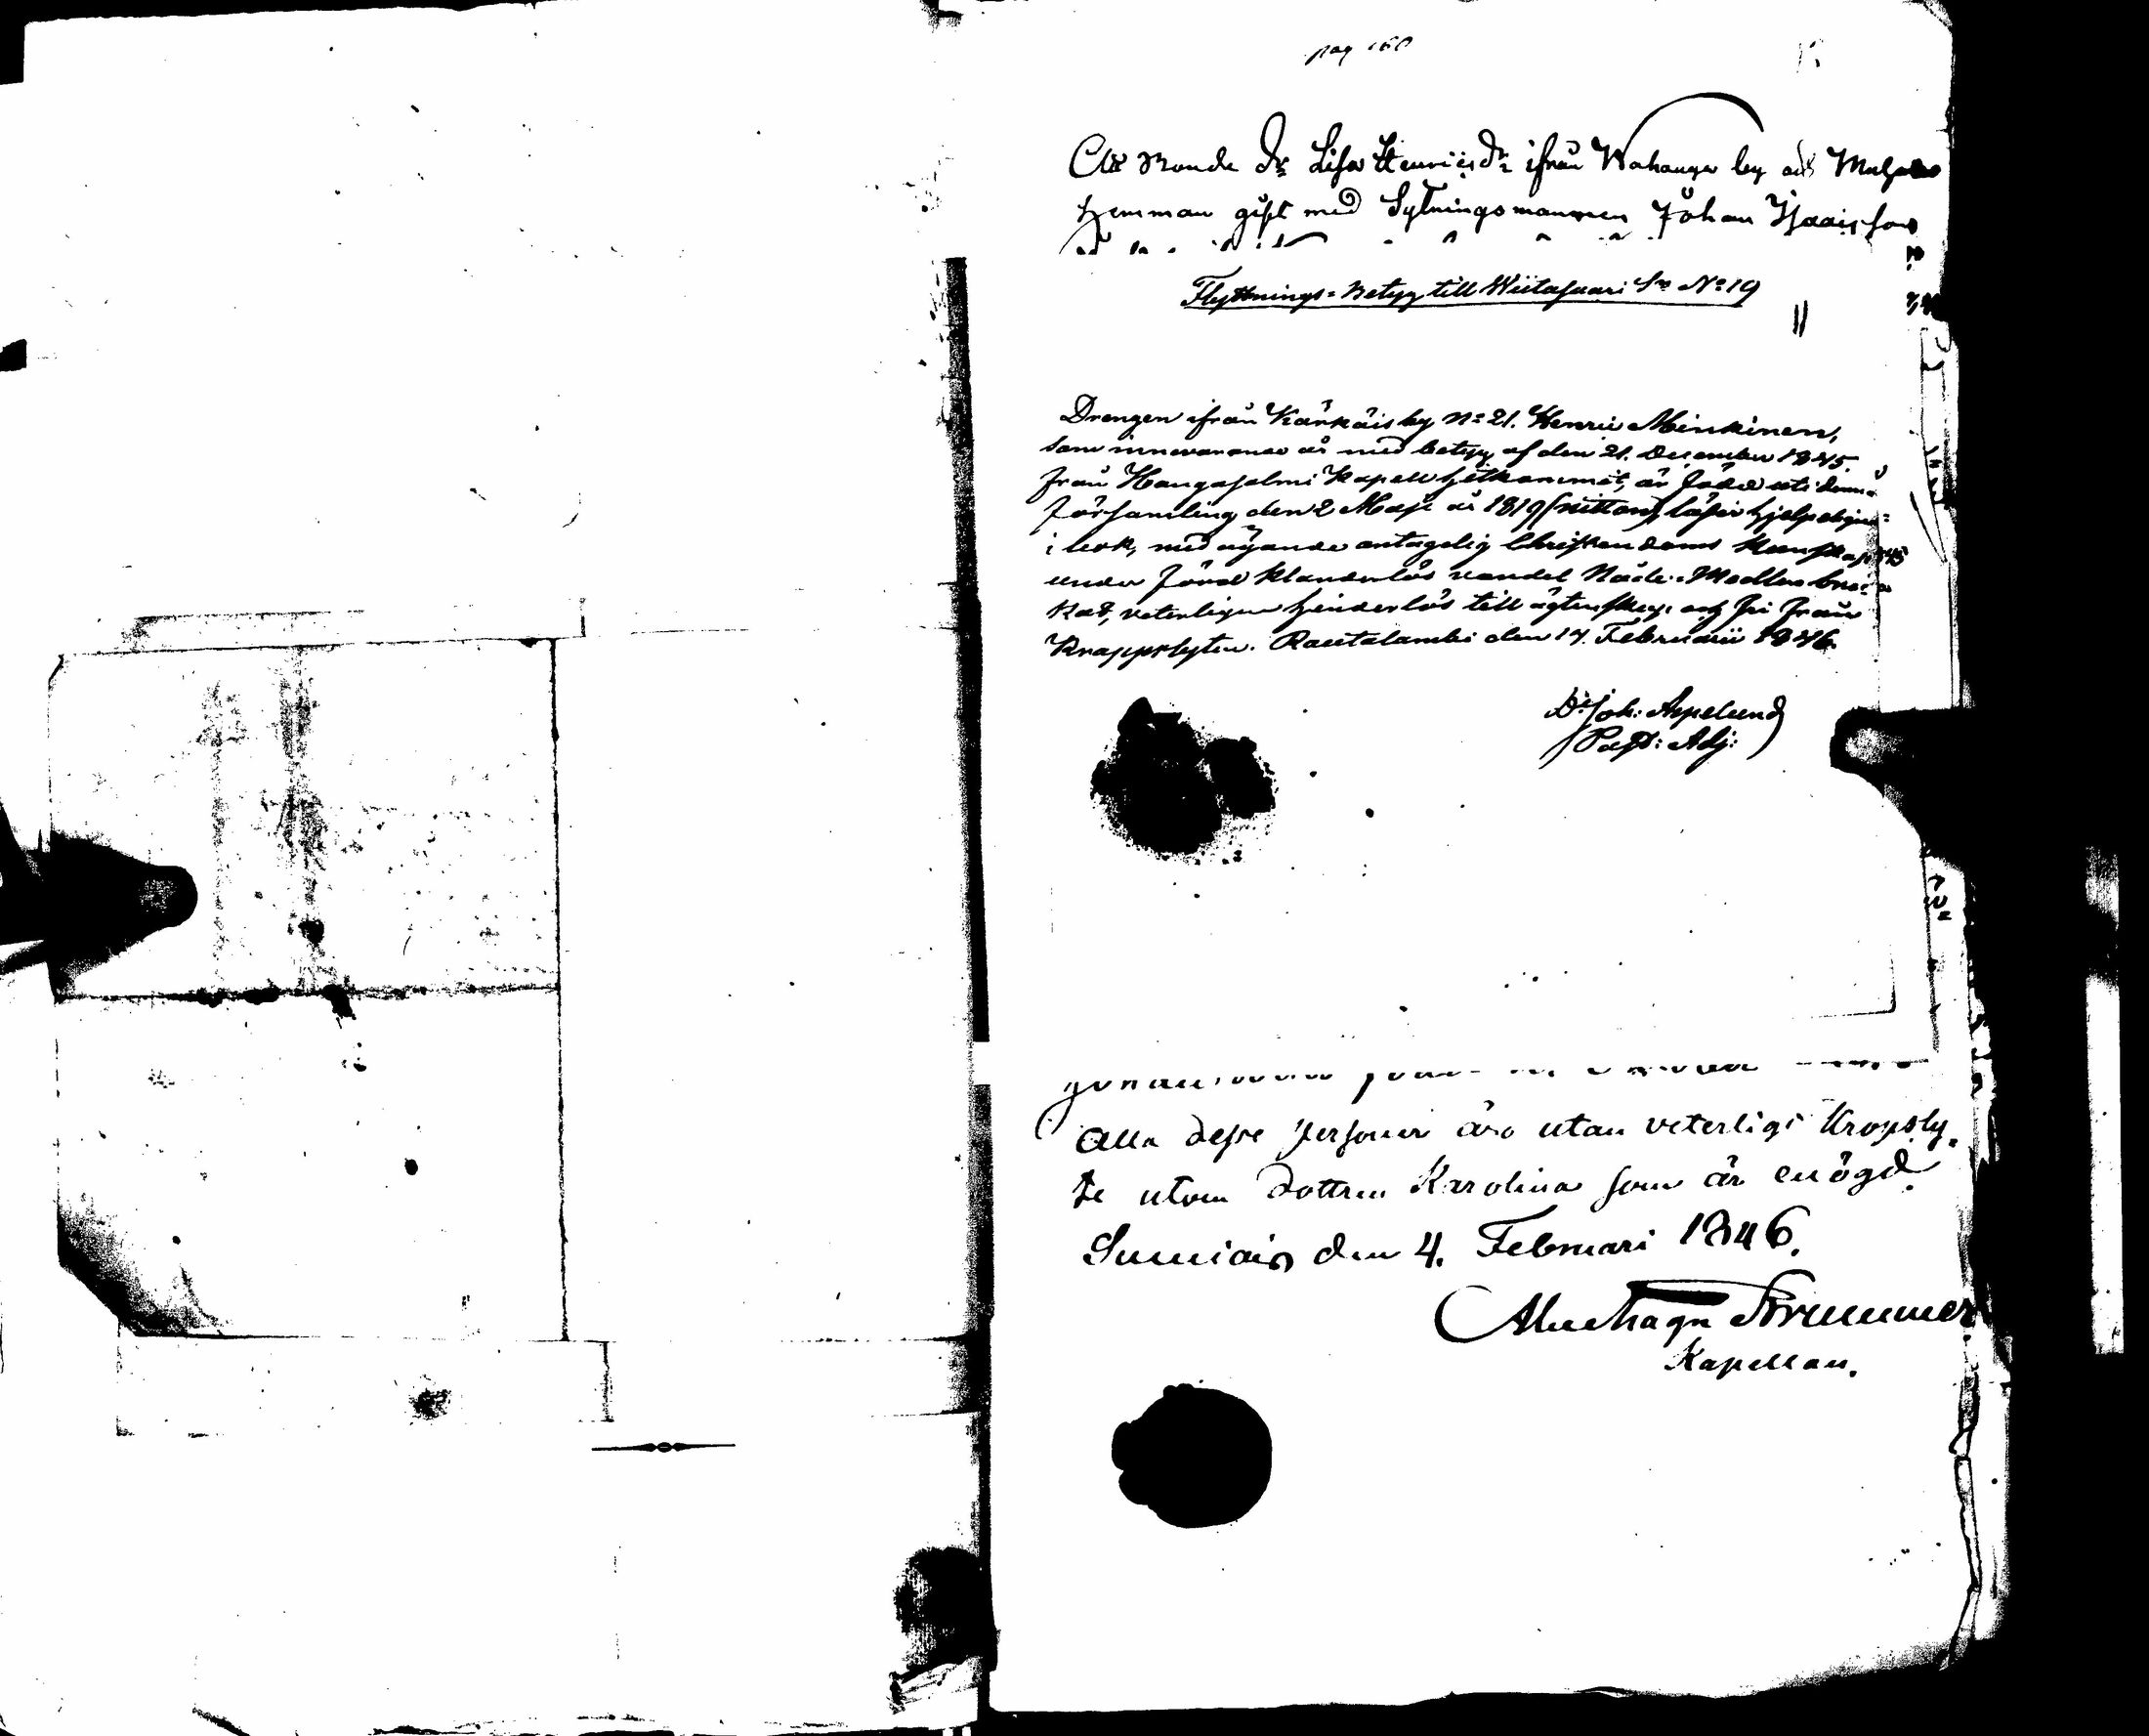 pag 160
Att Bonde Dr Lisa Henricsdr ifrån Wahanga by och
Hemman gift med Sytningsmannen Johan Isaacsson
Flyttnings-Betyg till Wiitasaari Sn No 19
Drengen ifrån Kärkäis by No 21. Henric Minkinen,
som innevarande år med betyg af den 21. December 1845.
från Hangasalmi Kapell hitkommit, är född uti denna
Församling den 2 Maji år 1819 (nitton), läser hjelpeligen
i bok, med ägande antagelig Christendoms Kunskap
under förd klanderlös vandel Nåde-Medlen bru-
kat, veterligen hinderlös till ägtenskap och fri från
Kroppslyten. Rautalambi den 17. Februarii 1846.
D. Joh: Aspelund
Past: Adj:
Alla desse personer äro utan veterligt Kropsly-
te utom dottren Karolina som är enögd.
Sumiais den 4. Februari 1846.
Brummer
Kapellan.